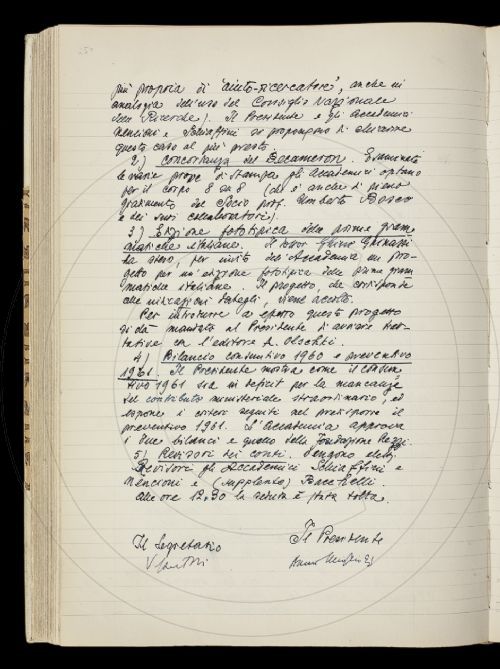 più propria di "aiuto-ricercatore", anche in
analogia dell'uso del Consiglio Nazionale
delle Ricerche). Il Presidente e gli Accademici
Nencioni e Schiaffini si propongono di
questo caso al più presto.
2) Concordanza del Decameron. Esaminate
le varie prove di stampa gli Accademici optano
per il corpo 8 su 8 (che è anche di pieno
gradimento del Socio prof. Umberto Bosco
e dei suoi collaboratori).
3) Edizione fototipica delle prime gram
matiche italiane. Il Ghino Ghinassi
ha steso, per invito dell'Accademia un pro-
getto per un'edizione fototipica delle prime gram
matiche italiane. Il progetto, che corrisponde
che dettagli, viene accolto.
Per introdurre a effetto questo progetto
si dà mandato al Presidente di avviare trat-
tative con l'editore A. Olschki.
4) Bilancio consuntivo 1960 e preventivo
1961. Il Presidente mostra come il consun
tivo 1961 sia in deficit per la mancanza
del contributo ministeriale straordinario, ed
espone i criteri seguiti nel predisporre il
preventivo 1961. L'Accademia approva
i due bilanci e quello della Fondazione
5) Revisori dei conti. Vengono eletti
Revisori gli Accademici Schiaffini e
Nencioni e (supplente) Bacchelli.
Alle ore 12,30 la seduta è stata tolta.
Il Segretario
Il Presidente